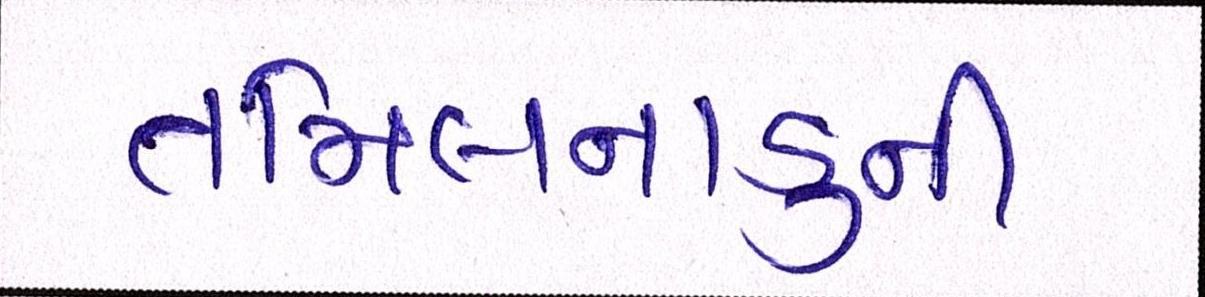 તમિલનાડુની